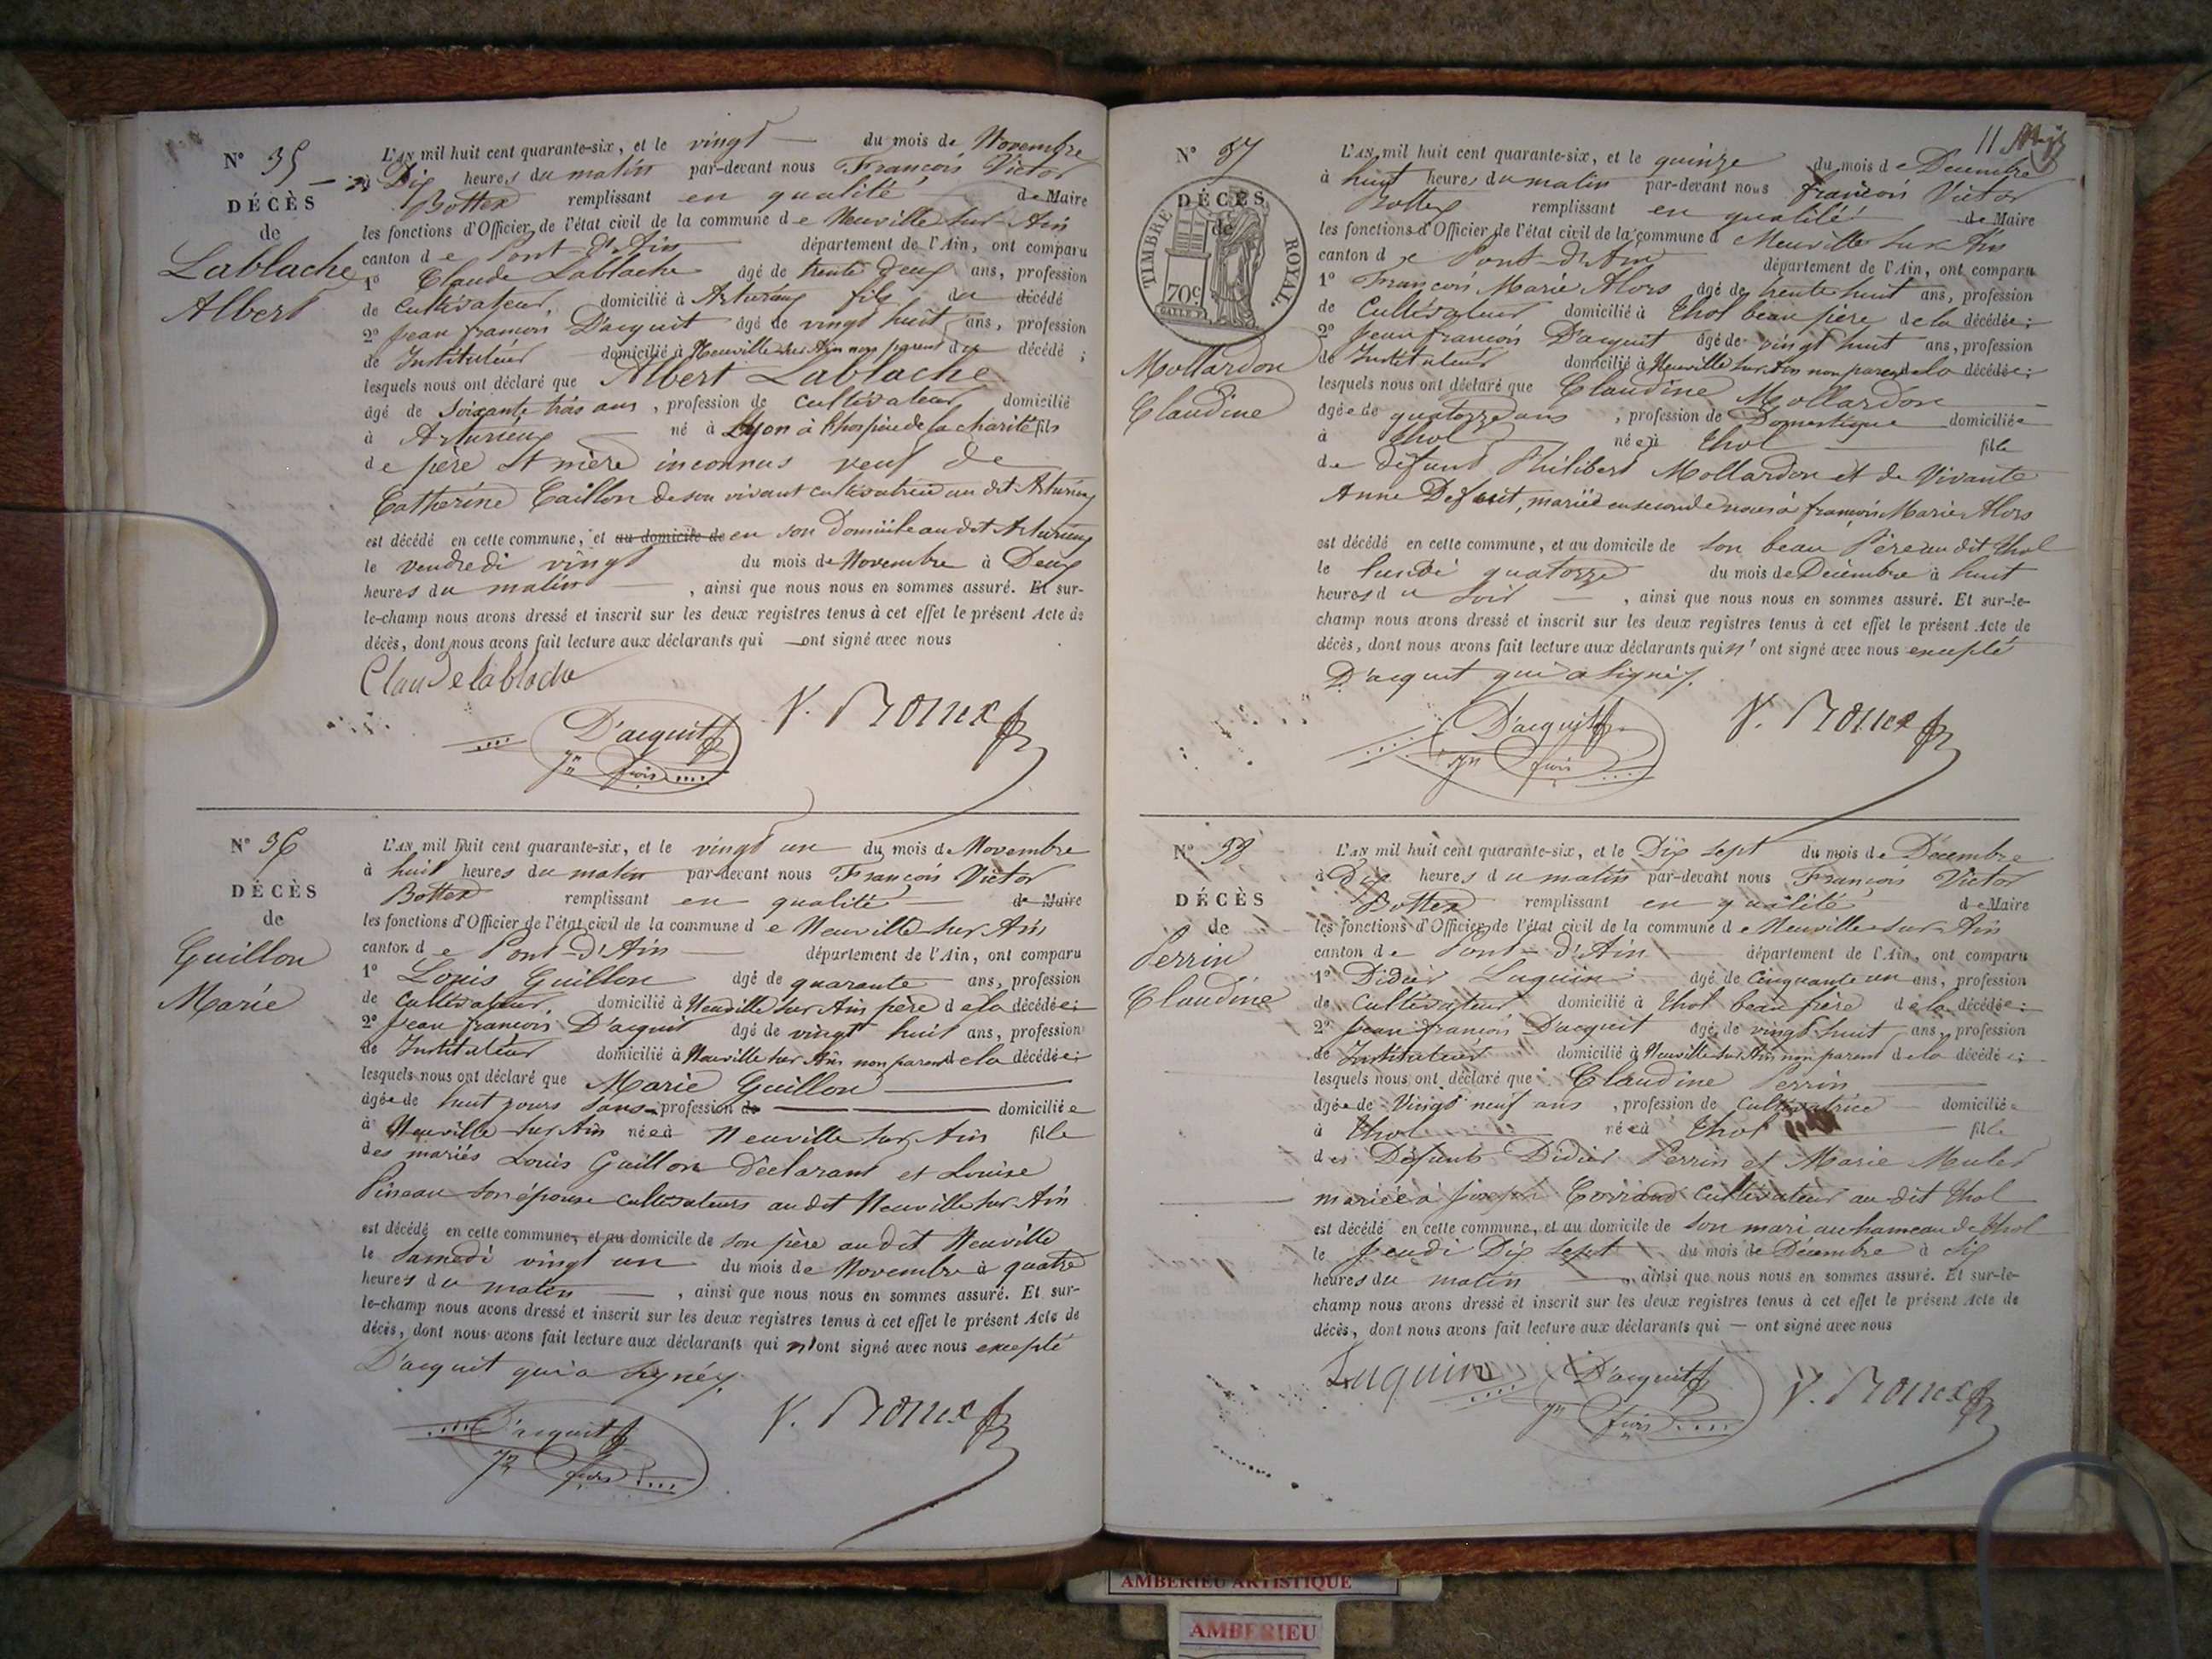 N° 35
DÉCÈS
de
Lablache
Albert
L'AN mil huit cent quarante-six, et le vingt du mois de Novembre
à Dix heures du matin par-devant nous François Victor
Bottex remplissant en qualité de Maire
les fonctions d'Officier de l'état civil de la commune de Neuville sur Ain
canton de Pont-d'Ain département de l'Ain, ont comparu
1° Claude Lablache âgé de trente deux ans, profession
de cultivateur, domicilié à Arturieux fils du décédé
2° Jean françois D'acquit âgé de vingt huit ans, profession
de Instituteur domicilié à Neuville sur Ain non parent du décédé ;
lesquels nous ont déclaré que Albert Lablache
âgé de soixante trois ans, profession de cultivateur domicilié
à Arturieux né à Lyon à l'hospice de la charité fils
de père et mère inconnus veuf de
Catherine Caillon de son vivant cultivatrice au dit Arturieux
est décédé en cette commune, et au domicile de en son Domicile au dit Arturieux
le vendredi vingt du mois de Novembre à Deux
heures du matin, ainsi que nous nous en sommes assuré. Et sur-
le-champ nous avons dressé et inscrit sur les deux registres tenus à cet effet le présent Acte de
décès, dont nous avons fait lecture aux déclarants qui — ont signé avec nous
Claude lablache
D'acquit V. Bottex
Jn fçois
N° 36
DÉCÈS
de
Guillon
Marie
L'AN mil huit cent quarante-six, et le vingt un du mois de Novembre
à huit heures du matin par-devant nous François Victor
Bottex remplissant en qualité de Maire
les fonctions d'Officier de l'état civil de la commune de Neuville sur Ain
canton de Pont-d'Ain département de l'Ain, ont comparu
1° Louis Guillon âgé de quarante ans, profession
de cultivateur, domicilié à Neuville sur Ain père de la décédée ;
2° Jean françois D'acquit âgé de vingt huit ans, profession
de Instituteur domicilié à Neuville sur Ain non parent de la décédée ;
lesquels nous ont déclaré que Marie Guillon
âgée de huit jours sans profession de domiciliée
à Neuville sur Ain née à Neuville sur Ain fille
des mariés Louis Guillon Déclarant et Louise
Pineau son épouse cultivateurs au dit Neuville sur Ain
est décédé en cette commune, et au domicile de son père au dit Neuville
le samedi vingt un du mois de Novembre à quatre
heures du matin, ainsi que nous nous en sommes assuré. Et sur-
le-champ nous avons dressé et inscrit sur les deux registres tenus à cet effet le présent Acte de
décès, dont nous avons fait lecture aux déclarants qui n'ont signé avec nous excepté
D'acquit qui a signé.
D'acquit V. Bottex
Jn fçois
11
N° 37
DÉCÈS
de
TIMBRE ROYAL.
70c
Mollardon
Claudine
L'AN mil huit cent quarante-six, et le quinze du mois de Decembre
à huit heures du matin par-devant nous françois Victor
Bottex remplissant en qualité de Maire
les fonctions d'Officier de l'état civil de la commune d Neuville sur Ain
canton de Pont-d'Ain département de l'Ain, ont comparu
1° François Marie Alors âgé de trente huit ans, profession
de Cultivateur domicilié à Thol beau père de la décédée ;
2° Jean françois D'acquit âgé de vingt huit ans, profession
de Instituteur domicilié à Neuville sur Ain non parent de la décédée ;
lesquels nous ont déclaré que Claudine Mollardon
âgée de quatorze ans, profession de Domestique domiciliée
à Thol née à Thol fille
de défunt Philibert Mollardon et de Vivante
Anne mariée en seconde noces à françois Marie Alors
est décédé en cette commune, et au domicile de son beau Père au dit Thol
le lundi quatorze du mois de Décembre à huit
heures du soir, ainsi que nous nous en sommes assuré. Et sur-le-
champ nous avons dressé et inscrit sur les deux registres tenus à cet effet le présent Acte de
décès, dont nous avons fait lecture aux déclarants qui n'ont signé avec nous excepté
D'acquit qui a signé.
D'acquit V. Bottex
Jn fçois
N° 38
DÉCÈS
de
Perrin
Claudine
L'AN mil huit cent quarante-six, et le Dix sept du mois de Décembre
à Dix heures du matin par-devant nous François Victor
Bottex remplissant en qualité de Maire
les fonctions d'Officier de l'état civil de la commune de Neuville sur Ain
canton de Pont-d'Ain département de l'Ain, ont comparu
1° Didier Luquin âgé de cinquante un ans, profession
de cultivateur domicilié à Thol beau frère de la décédée ;
2° Jean françois D'acquit âgé de vingt huit ans, profession
de Instituteur domicilié à Neuville sur Ain non parent de la décédée ;
lesquels nous ont déclaré que Claudine Perrin
âgée de Vingt neuf ans, profession de cultivatrice domiciliée
à Thol née à Thol fille
des Défunts Didier Perrin et Marie Mulet
mariée à Joseph Corrand cultivateur au dit Thol
est décédé en cette commune, et au domicile de son mari au hameau de Thol
le Jeudi Dix sept du mois de Décembre à Six
heures du matin, ainsi que nous nous en sommes assuré. Et sur-le-
champ nous avons dressé et inscrit sur les deux registres tenus à cet effet le présent Acte de
décès, dont nous avons fait lecture aux déclarants qui — ont signé avec nous
Luquin D'acquit V. Bottex
Jn fçois
AMBERIEU ARTISTIQUE
AMBERIEU